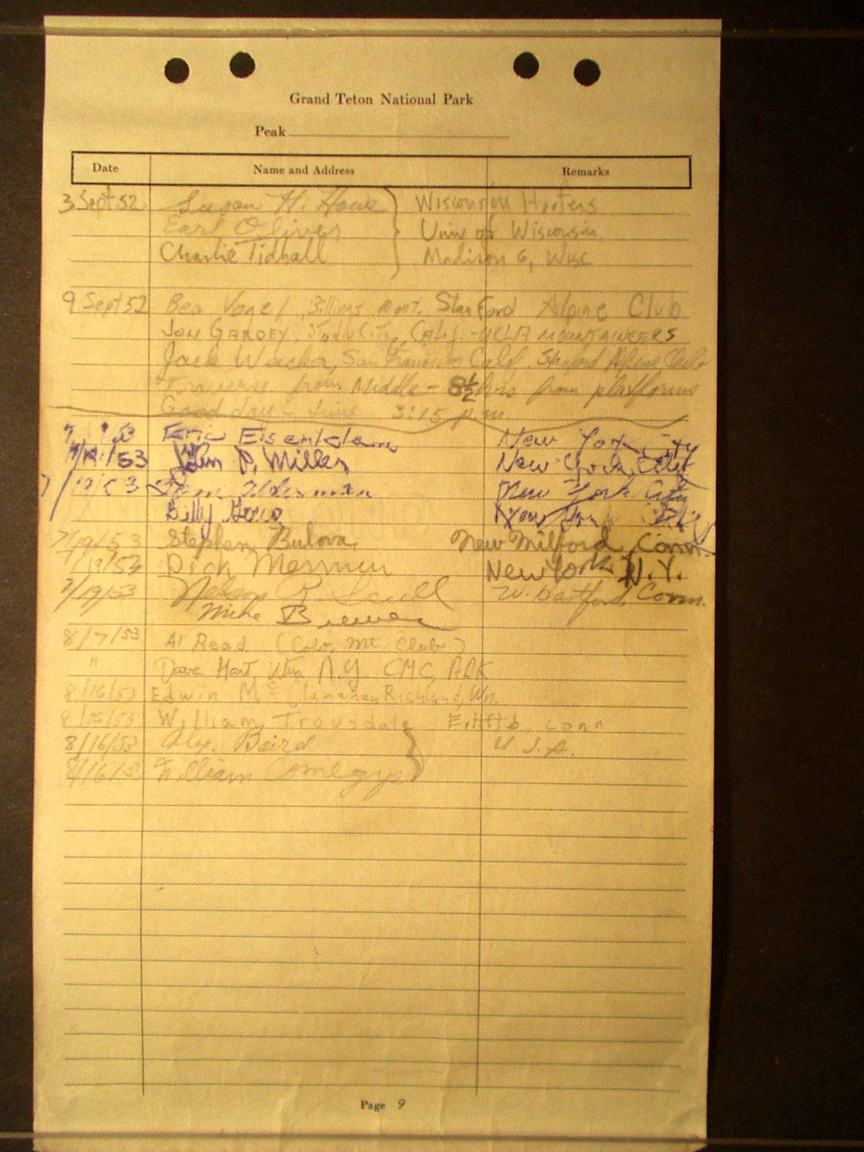 Grand Teton National Park
Peak
Date Name and Address Remarks
3 Sept 52 Susan H. Howe Wisconsin Hoofers
Earl Oliver Univ of Wisconsin
Charlie Tidball Madison 6, Wisc
9 Sept 52 Bea Vogel, Billings Mont. Stanford Alpine Club
Jon Gardey, Studio City, Calif. - UCLA MOUNTAINEERS
Jack San Francisco Calif. Stanford Alpine Club
Traverse from Middle - 8½ hrs from platforms
Good day - time 3:15 p.m.
Eric New York City
/53 John P. Miller New York City
New York City
Billy New York City
7/19/53 Stephen Bulova New Milford, Conn.
Dick New York N.Y.
7/19/53 Nelson W. Hartford, Conn.
Mike
8/7/53 Al Read (Colo. Mt. Club)
" Dave N.Y. CMC, ADK
8/16/53 Edwin Mc Clanahan Richland, Wn.
8/16/53 William Trousdale E. Htfd, conn
8/16/53 Alex. Baird U.S.A.
8/16/53 William Comegys
Page 9